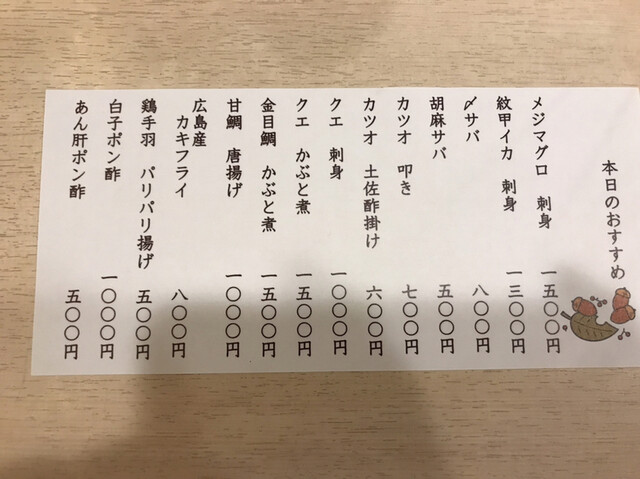 本日のおすすめ
メジマグロ 刺身 一五〇〇円
紋甲イカ 刺身 一三〇〇円
〆サバ 八〇〇円
胡麻サバ 五〇〇円
カツオ 叩き 七〇〇円
カツオ 土佐酢掛け 六〇〇円
クエ 刺身 一〇〇〇円
クエ かぶと煮 一五〇〇円
金目鯛 かぶと煮 一五〇〇円
甘鯛 唐揚げ 一〇〇〇円
広島産
カキフライ 八〇〇円
鶏手羽 パリパリ揚げ 五〇〇円
白子ポン酢 一〇〇〇円
あん肝ポン酢 五〇〇円